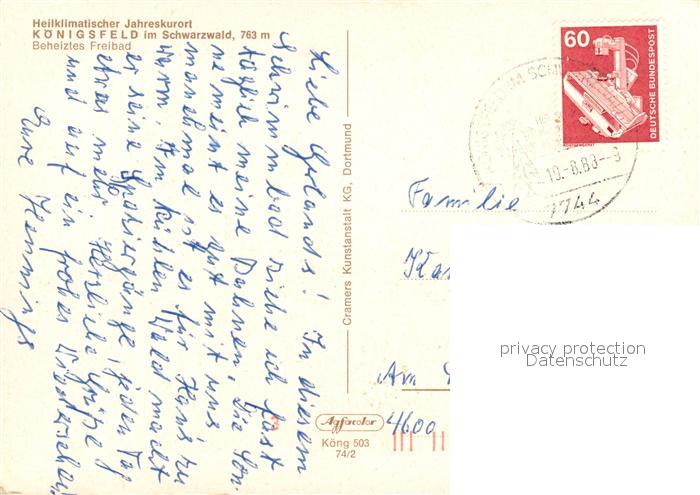 Heilklimatischer Jahreskurort
KÖNIGSFELD im Schwarzwald, 763 m
Beheiztes Freibad
Liebe Gerlands! In diesem
Schwimmbad ziehe ich fast
täglich meine Bahnen. Die Son-
ne meint es gut mit uns
manchmal ist es für Hans zu
warm. Im kühlen Wald macht
er seine Spaziergänge, jeden Tag
etwas mehr. Herzliche Grüße
und auf ein frohes Wiedersehen
Eure Hennings
Cramers Kunstanstalt KG, Dortmund
Agfacolor
Köng 503
74/2
60
DEUTSCHE BUNDESPOST
RÖNTGENGERÄT
-10.-8.83--9
7744
Familie
Am
4600
privacy protection
Datenschutz